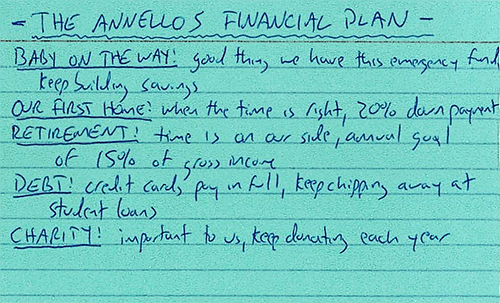 - THE ANNELLOS FINANCIAL PLAN -
BABY ON THE WAY! good thing we have this emergency fund,
keep building savings
OUR FIRST HOME! when the time is right, 20% down payment
RETIREMENT! time is on our side, annual goal
of 15% of gross income
DEBT! credit cards pay in full, keep chipping away at
student loans
CHARITY! important to us, keep donating each year